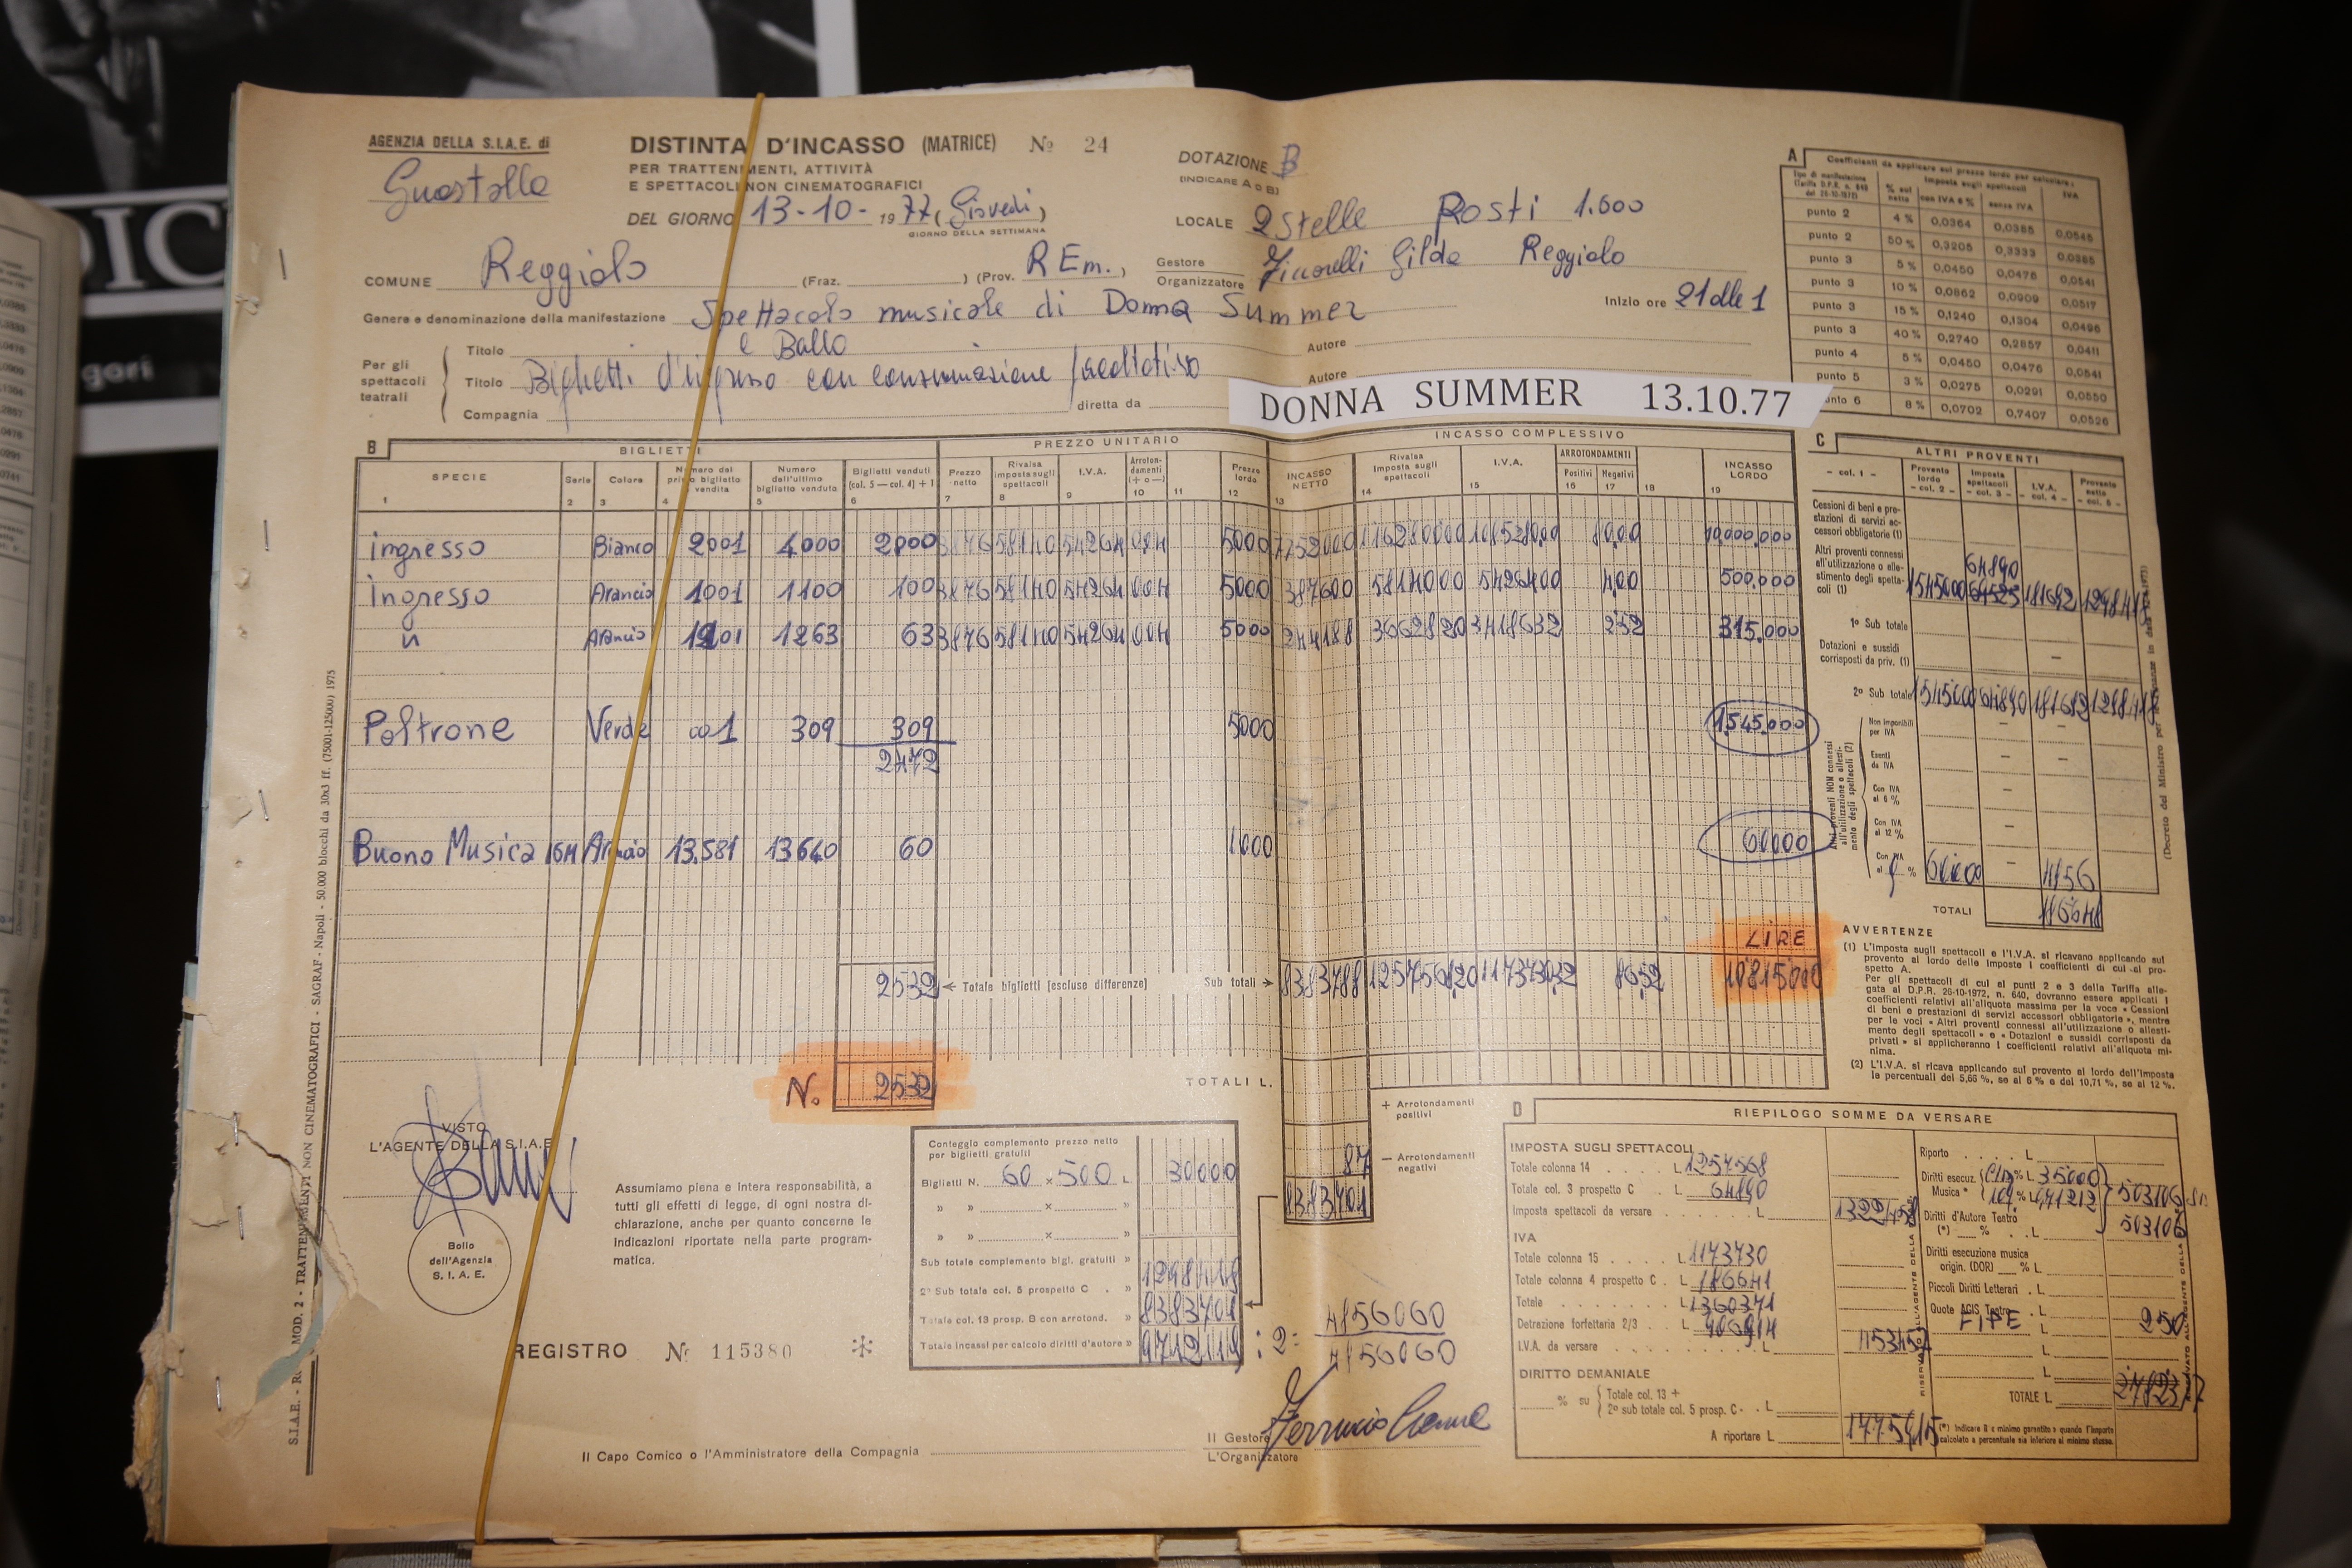 AGENZIA DELLA S.I.A.E. di
Guastalla
DISTINTA D'INCASSO (MATRICE) No 24
PER TRATTENIMENTI, ATTIVITÀ
E SPETTACOLI NON CINEMATOGRAFICI
DEL GIORNO 13-10- 1977 (Giovedì)
GIORNO DELLA SETTIMANA
DOTAZIONE B
(INDICARE A o B)
LOCALE 2 Stelle Posti 1.600
COMUNE Reggiolo (Fraz. ) (Prov. R Em.)
Gestore
Organizzatore Gilda Reggiolo
Genere e denominazione della manifestazione Spettacolo musicale di Donna Summer
Inizio ore 21 alle 1
e Ballo
Per gli spettacoli teatrali
Titolo Autore
Titolo Biglietti d'ingresso con consumazione facoltativa Autore
Compagnia diretta da
DONNA SUMMER 13.10.77
A Coefficienti da applicare sul prezzo lordo per calcolare:
Tipo di manifestazione (Tariffa D.P.R. n. 640 del 26-10-1972) % sul netto Imposta sugli spettacoli con IVA 6 % senza IVA IVA
punto 2 4 % 0,0364 0,0385 0,0545
punto 2 50 % 0,3205 0,3333 0,0385
punto 3 5 % 0,0450 0,0476 0,0541
punto 3 10 % 0,0862 0,0909 0,0517
punto 3 15 % 0,1240 0,1304 0,0496
punto 3 40 % 0,2740 0,2857 0,0411
punto 4 5 % 0,0450 0,0476 0,0541
punto 5 3 % 0,0275 0,0291 0,0550
punto 6 8 % 0,0702 0,7407 0,0526
B BIGLIETTI PREZZO UNITARIO INCASSO COMPLESSIVO
SPECIE Serie Colore Numero del primo biglietto vendita Numero dell'ultimo biglietto venduto Biglietti venduti (col. 5 — col. 4) + 1 Prezzo netto Rivalsa imposta sugli spettacoli I.V.A. Arrotondamenti (+ o —) Prezzo lordo INCASSO NETTO Rivalsa imposta sugli spettacoli I.V.A. ARROTONDAMENTI Positivi Negativi INCASSO LORDO
1 2 3 4 5 6 7 8 9 10 11 12 13 14 15 16 17 18 19
ingresso Bianco 2001 4000 2000 3876 58140 54264 004 5000 7752000 116280000 108528000 8000 10.000.000
ingresso Arancio 1001 1100 100 3876 58140 54264 004 5000 387600 5814000 5426400 400 500.000
" Arancio 1201 1263 63 3876 58140 54264 004 5000 244188 3662820 3418632 252 315.000
Poltrone Verde 001 309 309 5000 1.545.000
2472
Buono Musica 16M Arancio 13.581 13640 60 1.000 60000
LIRE
2532 ← Totale biglietti [escluse differenze] Sub totali → 8383788 125756820 117373032 8652 10815000
N. 2532
TOTALI L.
+ Arrotondamenti positivi
87 — Arrotondamenti negativi
8383701
C ALTRI PROVENTI
- col. 1 - Provento lordo - col. 2 - Imposta spettacoli - col. 3 - I.V.A. - col. 4 - Provento netto - col. 5 -
Cessioni di beni e prestazioni di servizi accessori obbligatorie (1)
Altri proventi connessi all'utilizzazione o allestimento degli spettacoli (1) 1545000 64890 181692 1298418
1° Sub totale
Dotazioni e sussidi corrisposti da priv. (1)
2° Sub totale 1545000 64890 181692 1298418
Altri proventi NON connessi all'utilizzazione o allestimento degli spettacoli (2)
Non imponibili per IVA
Esenti da IVA
Con IVA al 6 %
Con IVA al 12 %
Con IVA al 9 % 60000 4956
TOTALI 186648
AVVERTENZE
(1) L'imposta sugli spettacoli e l'I.V.A. si ricavano applicando sul
provento al lordo delle imposte i coefficienti di cui al prospetto A.
Per gli spettacoli di cui ai punti 2 e 3 della Tariffa allegata
al D.P.R. 26-10-1972, n. 640, dovranno essere applicati i
coefficienti relativi all'aliquota massima per la voce « Cessioni
di beni e prestazioni di servizi accessori obbligatorie », mentre
per le voci « Altri proventi connessi all'utilizzazione o allestimento
degli spettacoli » e « Dotazioni e sussidi corrisposti da
privati » si applicheranno i coefficienti relativi all'aliquota minima.
(2) L'I.V.A. si ricava applicando sul provento al lordo dell'imposta
le percentuali del 5,66 %, se al 6 % e del 10,71 %, se al 12 %.
VISTO
L'AGENTE DELLA S.I.A.E.
Bollo dell'Agenzia S. I. A. E.
Assumiamo piena e intera responsabilità, a
tutti gli effetti di legge, di ogni nostra dichiarazione,
anche per quanto concerne le
indicazioni riportate nella parte programmatica.
REGISTRO No 115380
Conteggio complemento prezzo netto per biglietti gratuiti
Biglietti N. 60 × 500 L 30000
Sub totale complemento bigl. gratuiti »
2° Sub totale col. 5 prospetto C . » 1298418
Totale col. 13 prosp. B con arrotond. » 8383701
Totale incassi per calcolo diritti d'autore » 9712119 : 2 = 4856060
4856060
Il Capo Comico o l'Amministratore della Compagnia
Il Gestore
L'Organizzatore
D RIEPILOGO SOMME DA VERSARE
IMPOSTA SUGLI SPETTACOLI
Totale colonna 14 L 1257568
Totale col. 3 prospetto C L 64890
Imposta spettacoli da versare L 1322458
IVA
Totale colonna 15 L 1173730
Totale colonna 4 prospetto C L 186641
Totale L 1360371
Detrazione forfettaria 2/3 L 906914
I.V.A. da versare L 453457
DIRITTO DEMANIALE
% su Totale col. 13 + 2° sub totale col. 5 prosp. C L
A riportare L 1775915
Riporto L
Diritti esecuz. Musica * % L 35000
10% L 471212 503106
Diritti d'Autore Teatro (*) % L 503106
Diritti esecuzione musica origin. (DOR) % L
Piccoli Diritti Letterari L
Quote AGIS Teatro L
FIPE L 250
TOTALE L
(*) Indicare il « minimo garantito » quando l'importo calcolato a percentuale sia inferiore al minimo stesso.
S.I.A.E. - R. MOD. 2 - TRATTENIMENTI NON CINEMATOGRAFICI - SAGRAF - Napoli - 50.000 blocchi da 30x3 ff. (75001-125000) 1975